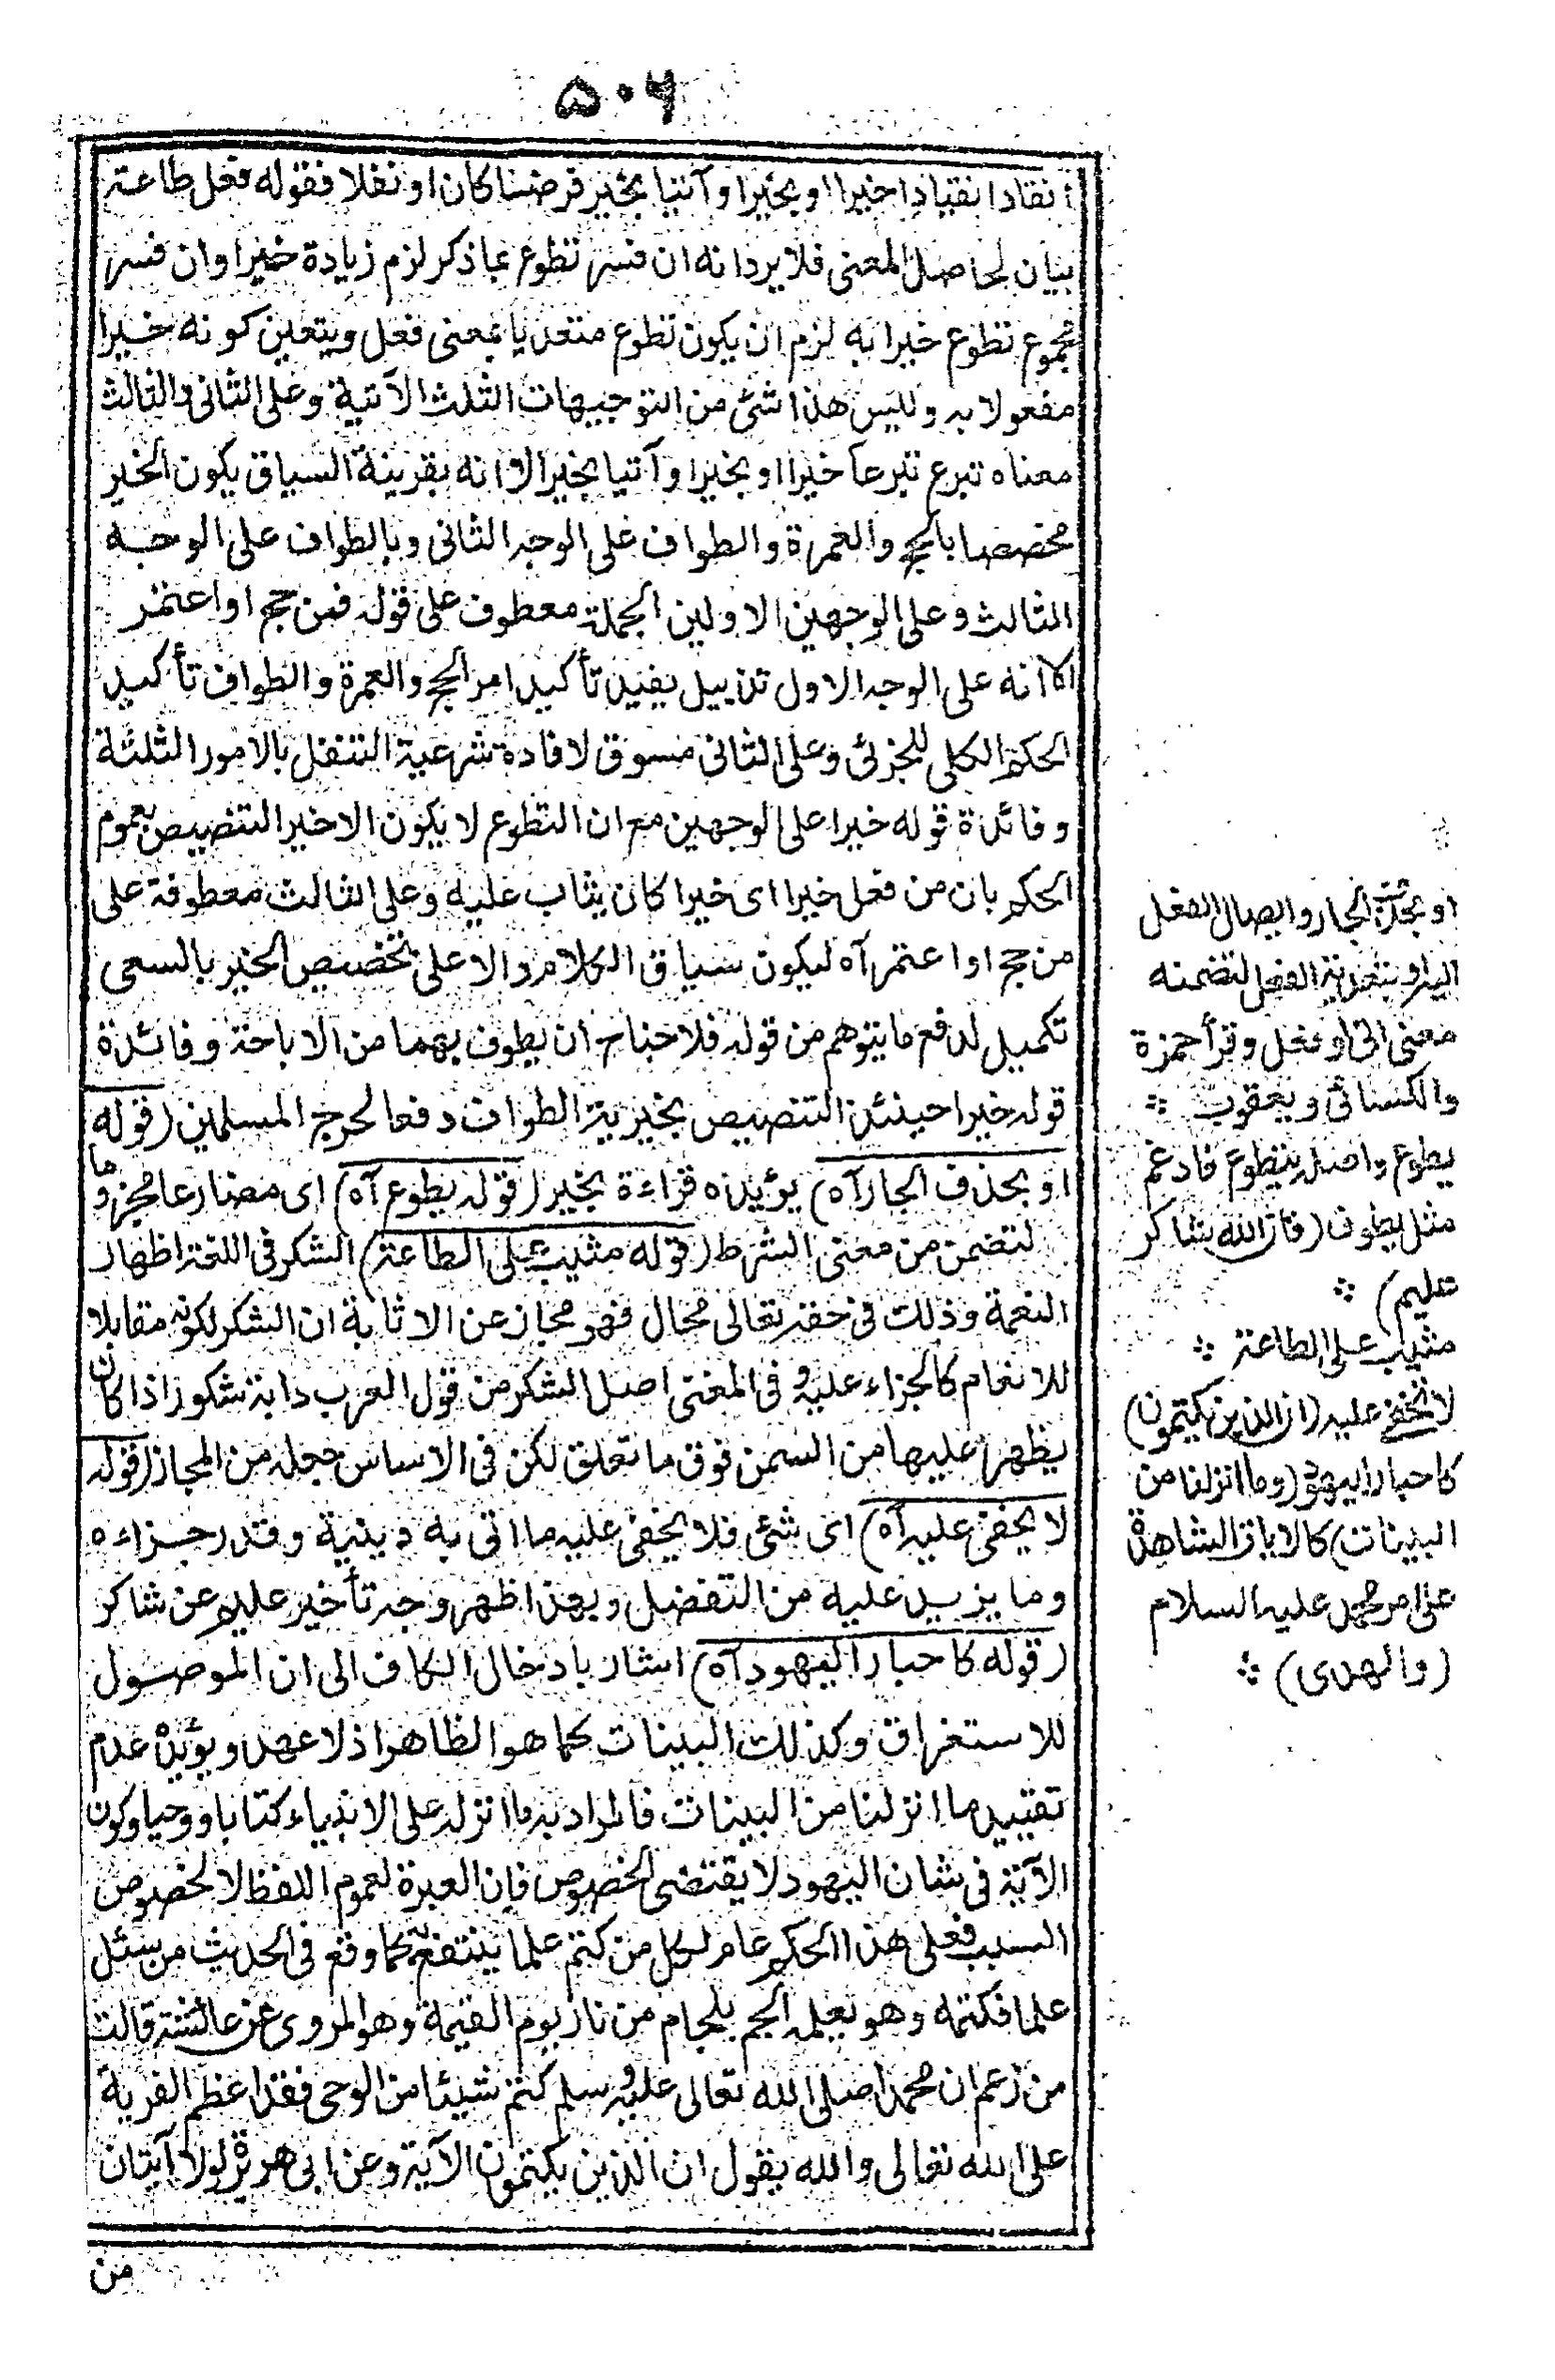 ۵۰۶
انقاد انقيادا خيرا او بخير او آتيا بخير فرضا كان او نفلا فقوله فعل طاعة
بيان لحاصل المعنى فلا يرد انه ان فسر تطوع بما ذكر لزم زيادة خيرا وان فسر
مجموع تطوع خيرا به لزم ان يكون تطوع متعديا بمعنى فعل ويتعين كونه خيرا
مفعولا به وليس هذا شئ من التوجيهات الثلث الآتية وعلى الثانى والثالث
معناه تبرع تبرعا خيرا او بخير او آتيا بخير الا انه بقرينة السياق يكون الخير
مخصصا بالحج والعمرة والطواف على الوجه الثانى وبالطواف على الوجه
الثالث وعلى الوجهين الاولين الجملة معطوف على قوله فمن حج او اعتمر
الا انه على الوجه الاول تذييل يفيد تأكيد امر الحج والعمرة والطواف تأكيد
الحكم الكلى للجزئى وعلى الثانى مسوق لافادة شرعية التنفل بالامور الثلثة
وفائدة قوله خيرا على الوجهين مع ان التطوع لا يكون الا خيرا التنصيص بعموم
الحكم بان من فعل خيرا اى خيرا كان يثاب عليه وعلى الثالث معطوفة على
من حج او اعتمر آه ليكون سياق الكلام دالا على تخصيص الخير بالسعى
تكميل لدفع ما يتوهم من قوله فلا جناح ان يطوف بهما من الاباحة وفائدة
قوله خيرا حينئذ التنصيص بخيرية الطواف دفعا لحرج المسلمين (قوله
او بحذف الجار آه) يؤيده قراءة بخير (قوله يطوع آه) اى مضارعا مجزوما
لتضمن من معنى الشرط (قوله مثيب على الطاعة) الشكر فى اللغة اظهار
النعمة وذلك فى حقه تعالى محال فهو مجاز عن الاثابة ان الشكر لكونه مقابلا
للانعام كالجزاء عليه وفى المغنى اصل الشكر من قول العرب دابة شكور اذا كان
يظهر عليها من السمن فوق ما تعلق لكن فى الاساس جعله من المجاز (قوله
لا يخفى عليه آه) اى شئ فلا يخفى عليه ما اتى به ونيته وقدر جزاءه
وما يزيد عليه من التفضل وبهذا ظهر وجه تأخير عليم عن شاكر
(قوله كاحبار اليهود آه) اشار بادخال الكاف الى ان الموصول
للاستغراق وكذلك البينات كما هو الظاهر اذ لا عهد ويؤيده عدم
تقييد ما انزلنا من البينات فالمراد به ما انزله على الانبياء كتابا او وحيا وكون
الآية فى شان اليهود لا يقتضى الخصوص فان العبرة لعموم اللفظ لا لخصوص
السبب فعلى هذا الحكم عام لكل من كتم علما ينتفع به كما وقع فى الحديث من سئل
علما فكتمه وهو يعلمه الجم بلجام من نار يوم القيمة وهو المروى عن عائشة قالت
من زعم ان محمدا صلى الله تعالى عليه وسلم كتم شيئا من الوحى فقد اعظم الفرية
على الله تعالى والله يقول ان الذين يكتمون الآية وعن ابى هريرة لولا آيتان
من
او بحذف الجار وايصال الفعل
اليه او بتعدية الفعل لتضمنه
معنى اتى او فعل وقرأ حمزة
والكسائى ويعقوب ⁘
يطوع واصله يتطوع فادغم
مثل يطوف (فان الله شاكر
عليم) ⁘
مثيب على الطاعة ⁘
لا تخفى عليه (ان الذين يكتمون)
كاحبار اليهود (وما انزلنا من
البينات) كالايات الشاهدة
على امر محمد عليه السلام
(والهدى) ⁘